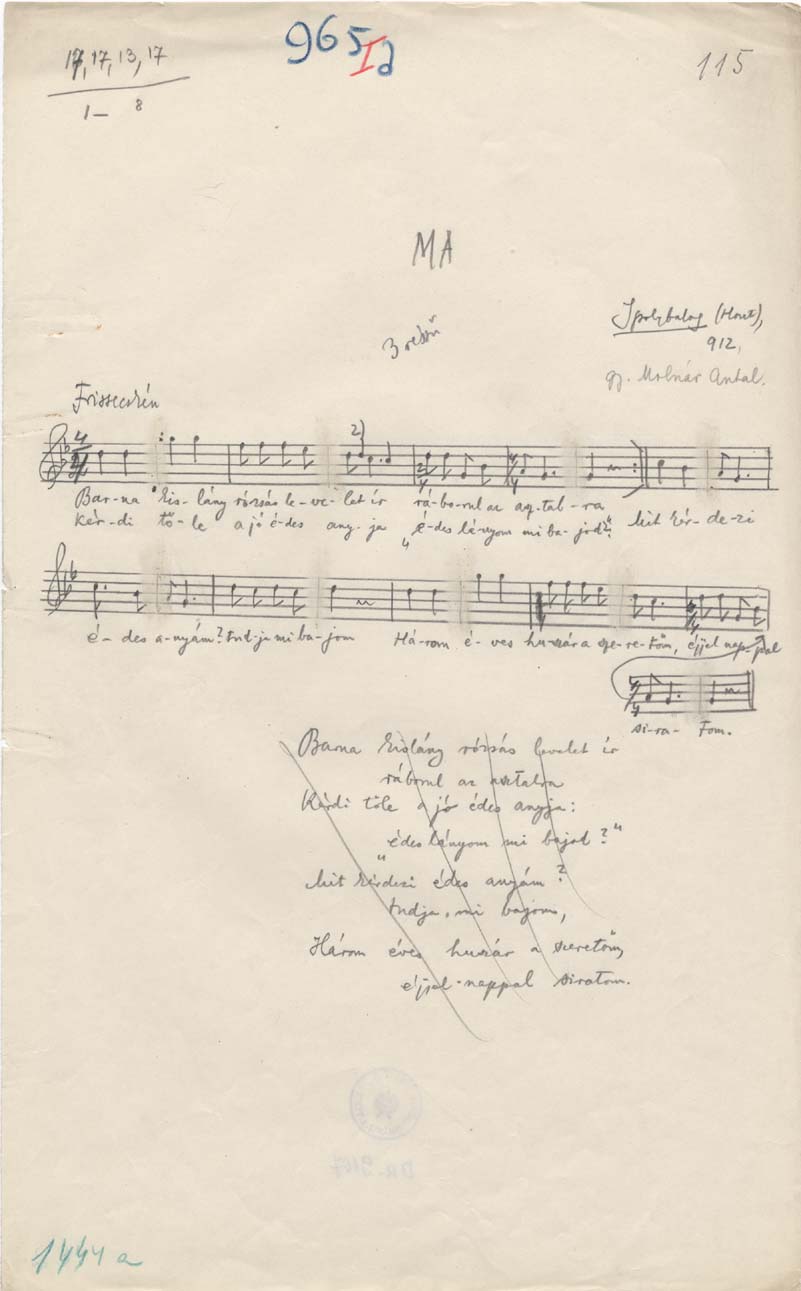 965 I d
17, 17, 13, 17
115
1– 8
MA
Ipolybalog (Hont),
912,
gy. Molnár Antal.
Frissecskén
2)
Bar-na kis-lány rózsás le-ve-let ír rá-bo-rul az asz-tal-ra
kér-di tő-le a jó é-des any-ja „é-des lá-nyom mi ba-jod?" Mit kér-de-zi
é-des a-nyám? tud-ja mi ba-jom Há-rom é-ves huszár a sze-re-tőm, éjjel nap-pal
si-ra-tom.
Barna kislány rózsás levelet ír
ráborul az asztalra
Kérdi tőle a jó édes anyja:
„édes lányom mi bajod?"
Mit kérdezi édes anyám?
tudja, mi bajom,
Három éves huszár a szeretőm,
éjjel-nappal siratom.
1444 a